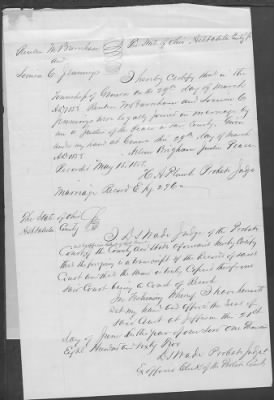 Reuben M Burnham The State of Ohio Ashtabula County ss
and
Lorinda C Jennings I hereby Certify that on the
Township of Geneva on 29th day of March
AD 1857 Reuben M Burnham and C
Jennings were legally joined in marriage by
me a Justice of the Peace in said County Given
under my hand at Geneva this 29th day of March
AD 1857. Brigham Justice Peace
Recorded May 15. 1857.
H A Plumb Probate Judge
Marriage Record E pg
The State of Ohio
Ashtabula County ss
I D S Wade Judge of the Probate
Court of the County and State aforesaid hereby Certify
that the foregoing is a transcript of the Record of said
Court and that the same is truly Copied therefrom
said Court being a Court of Record
In Testimony Whereof I have hereunto
set my hand and affixed the Seal of
said Court at Jefferson the 21st
day of June in the year of our Lord one thousand
Eight Hundred and Sixty
D S Wade Probate Judge &
Ex officio Clerk of the Probate Court